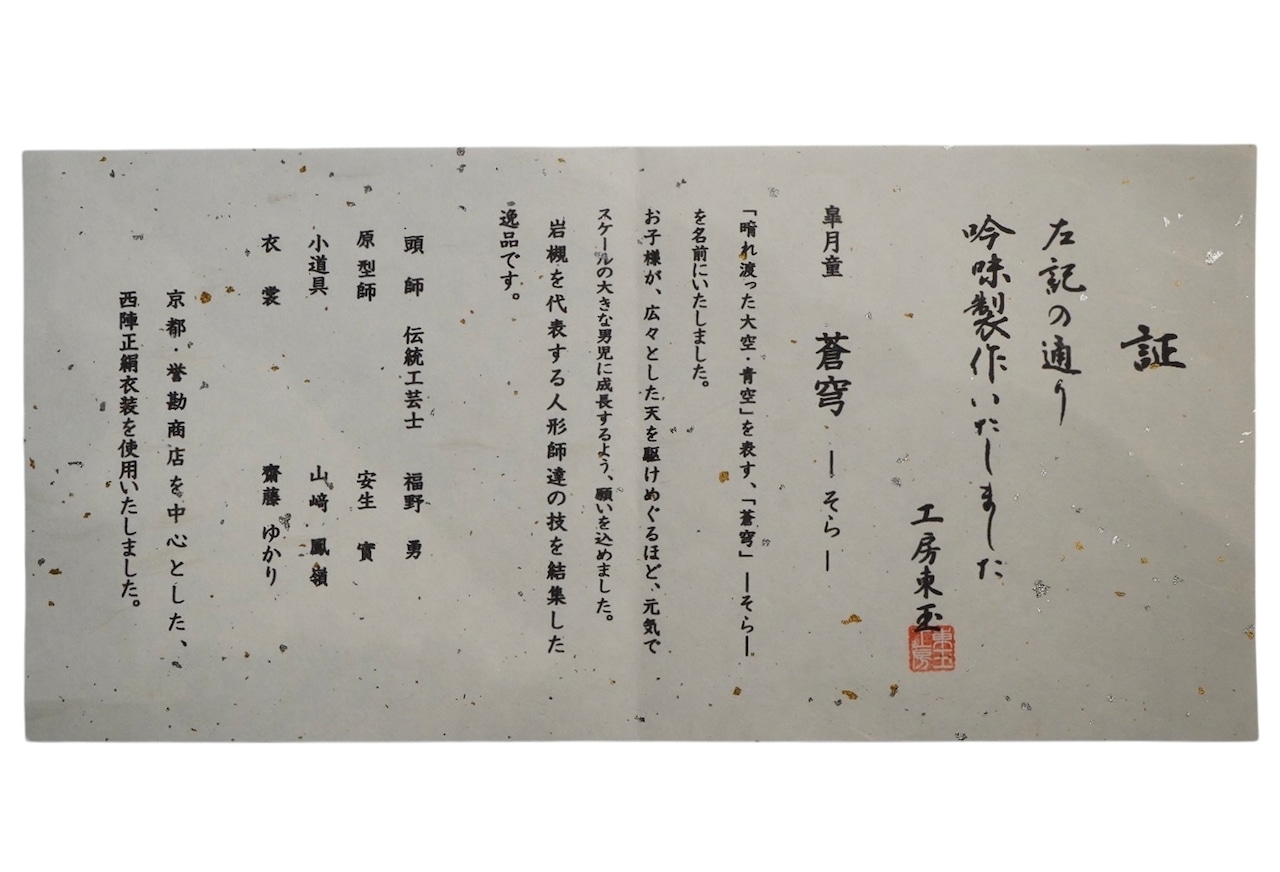 証
左記の通り
吟味製作いたしました
工房東玉
皐月童　蒼穹　―そら―
「晴れ渡った大空・青空」を表す、「蒼穹」―そら―
を名前にいたしました。
お子様が、広々とした天を駆けめぐるほど、元気で
スケールの大きな男児に成長するよう、願いを込めました。
岩槻を代表する人形師達の技を結集した
逸品です。
頭師　伝統工芸士　福野　勇
原型師　安生　實
小道具　山﨑　鳳嶺
衣裳　齋藤　ゆかり
京都・誉勘商店を中心とした、
西陣正絹衣装を使用いたしました。